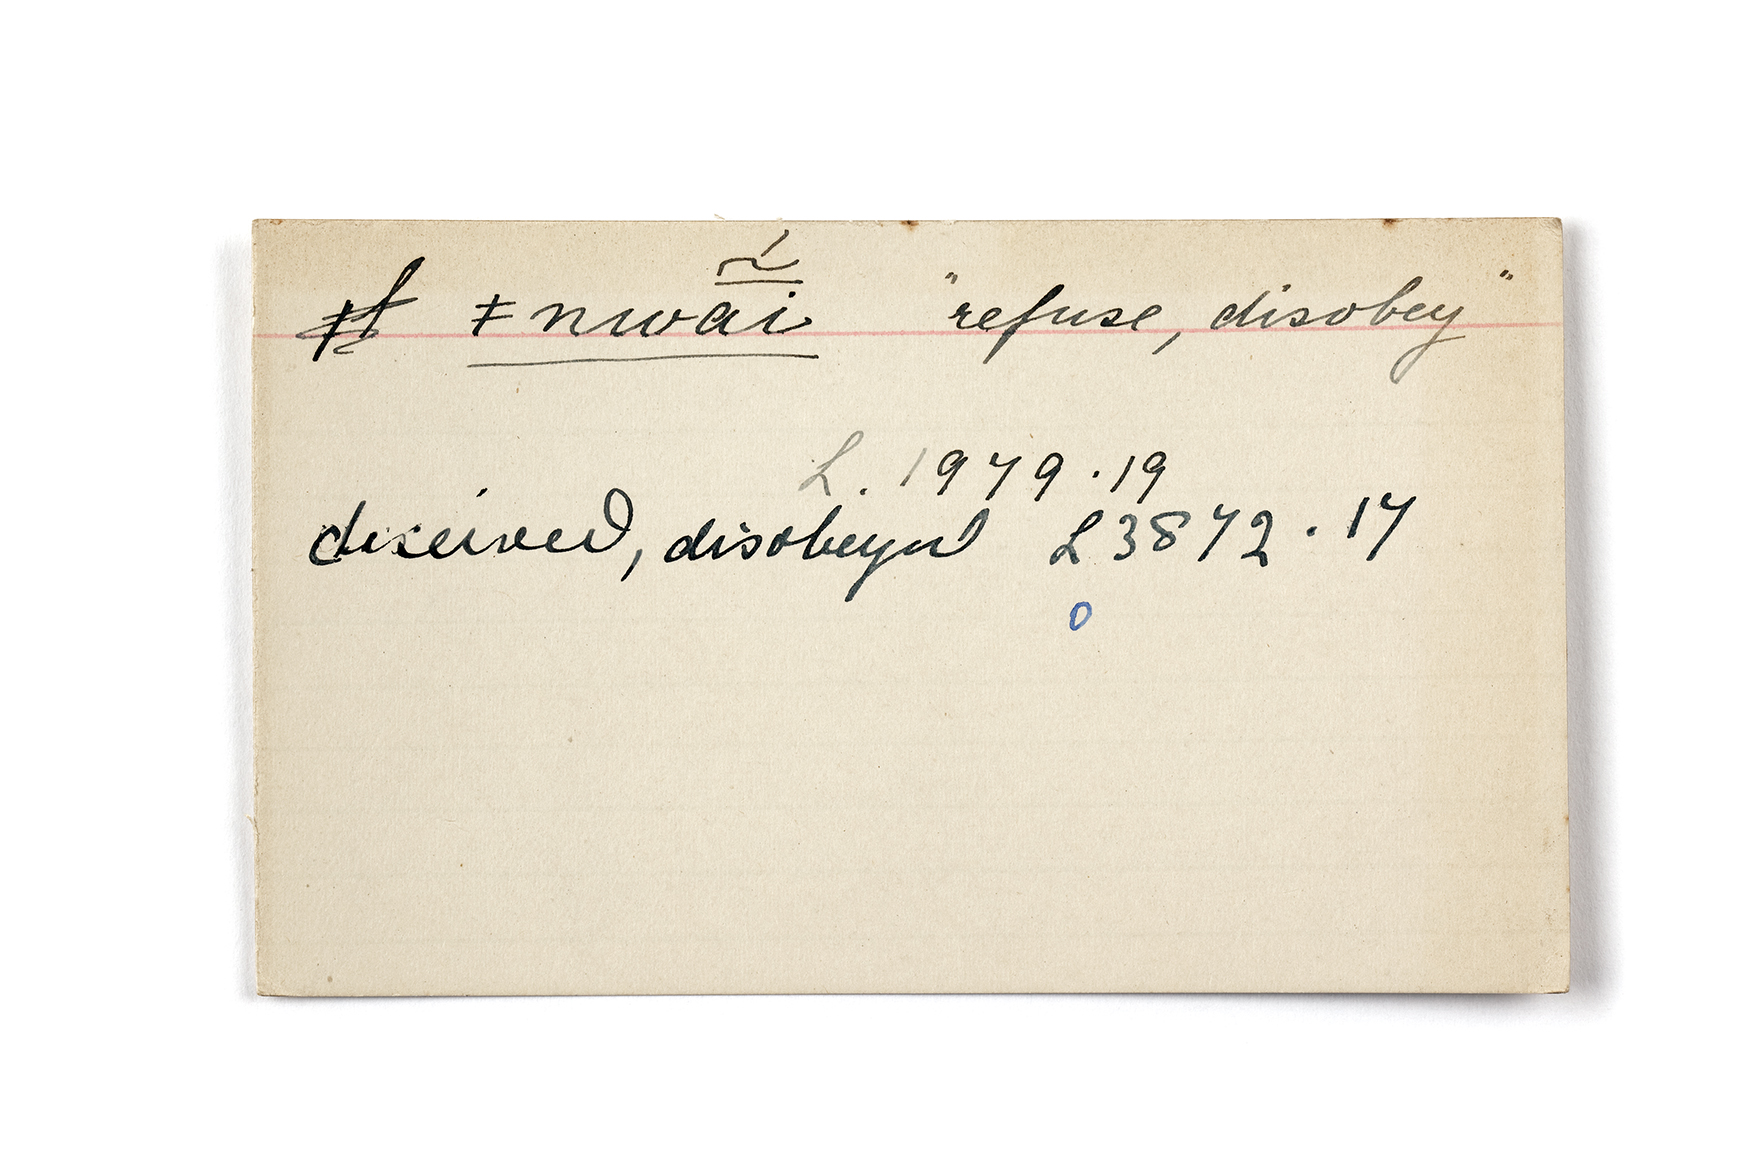 ǂnwai "refuse, disobey"
L. 1979.19
deceived, disobeyed L 3872.17
o